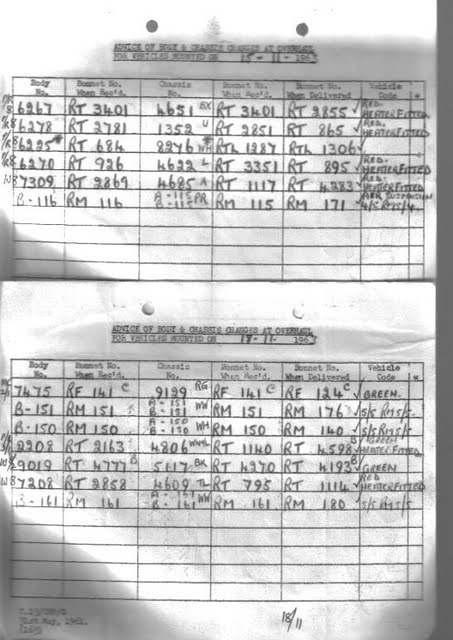 ADVICE OF BODY & CHASSIS CHANGES AT OVERHAUL
FOR VEHICLES MOUNTED ON 15-11-1963
Body No. Bonnet No. When Rec'd. Chassis No. Bonnet No. When Rec'd. Bonnet No. When Delivered Vehicle Code *
8 6267 RT 3401 4651 BX RT 3401 RT 2855 ✓ RED. HEATER FITTED
8 6278 RT 2781 1352 U RT 2851 RT 865 ✓ HEATER FITTED
8 6225* RT 684 8276 WH RTL 1287 RTL 1306 ✓
8 6270 RT 926 4622 L RT 3351 RT 895 ✓ RED. HEATER FITTED
W 8 7309 RT 2869 4685 A RT 1117 RT 4283 ✓ RED. HEATER FITTED
B-116 RM 116 A-115 B-115 PR RM 115 RM 171 ✓ AIR SUSPENSION 4/5 RM5/4
ADVICE OF BODY & CHASSIS CHANGES AT OVERHAUL
FOR VEHICLES MOUNTED ON 18-11-1963
Body No. Bonnet No. When Rec'd. Chassis No. Bonnet No. When Rec'd. Bonnet No. When Delivered Vehicle Code *
7475 RF 141 C 9199 RG RF 141 C RF 124 C ✓ GREEN.
B-151 RM 151 A-151 B-151 WW RM 151 RM 176 ✓ 5/5 RM5/5.
B-150 RM 150 A-150 B-150 WH RM 150 RM 140 ✓ 5/5 RM5/5.
2208 RT 2163 4806 RT 1140 RT 4598 ✓ GREEN HEATER FITTED
9019 RT 4777 B 5117 BK RT 4270 RT 4193 B ✓ GREEN
W 8 7208 RT 2858 4609 TL RT 795 RT 1114 ✓ RED HEATER FITTED
B-161 RM 161 A-161 B-161 WW RM 161 RM 180 ✓ 5/5 RM5/5
31st May, 1961
18/11